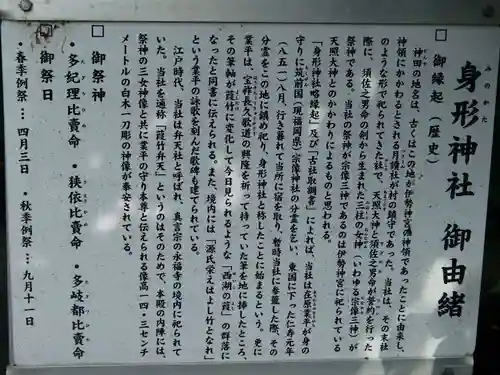 身形神社 御由緒
みのかた
□御縁起(歴史)
神田の地名は、古くはこの地が伊勢神宮の神領であったことに由来し、
神領にかかわるとされる月読社が村の鎮守であった。当社は、その末社
のような形で祀られてきた社で、天照大神と須佐之男命が誓約を行った
際に、須佐之男命の剣から生まれた三柱の女神(いわゆる宗像三神)が
祭神である。当社の祭神が宗像三神であるのは伊勢神宮に祀られている
天照大神とのかかわりによるものと思われる。
「身形神社略縁起」及び「古社取調書」によれば、当社は在原業平が身の
守りに筑前国(現福岡県)宗像神社の分霊を乞い、東国に下った仁寿元年
(八五一)八月、行き暮れて当所に宿を取り、暫時当社に参籠した際、その
分霊をこの地に鎮め祀り、身形神社と称したことに始まるという。更に
業平は、宝祚長久歌道の興隆を祈って持っていた筆を地に挿したところ、
その筆軸が葭竹に変化して今日見られるような「西湖の葭」の群落に
なったと同書に伝えられる。また、境内には「源氏栄えばよし竹となれ」
という業平の詠歌を刻んだ歌碑も建てられている。
江戸時代、当社は弁天社と呼ばれ、真言宗の永福寺の境内に祀られて
いた。当社を通称「葭竹弁天」というのはそのためで、本殿の内陣には、
祭神の三女神像と共に業平の守り本尊と伝えられる像高一四・三センチ
メートルの白木一刀彫の神像が奉安されている。
□御祭神
・多紀理比賣命 ・狭依比賣命 ・多岐都比賣命
□御祭日
・春季例祭…四月三日 ・秋季例祭…九月十一日